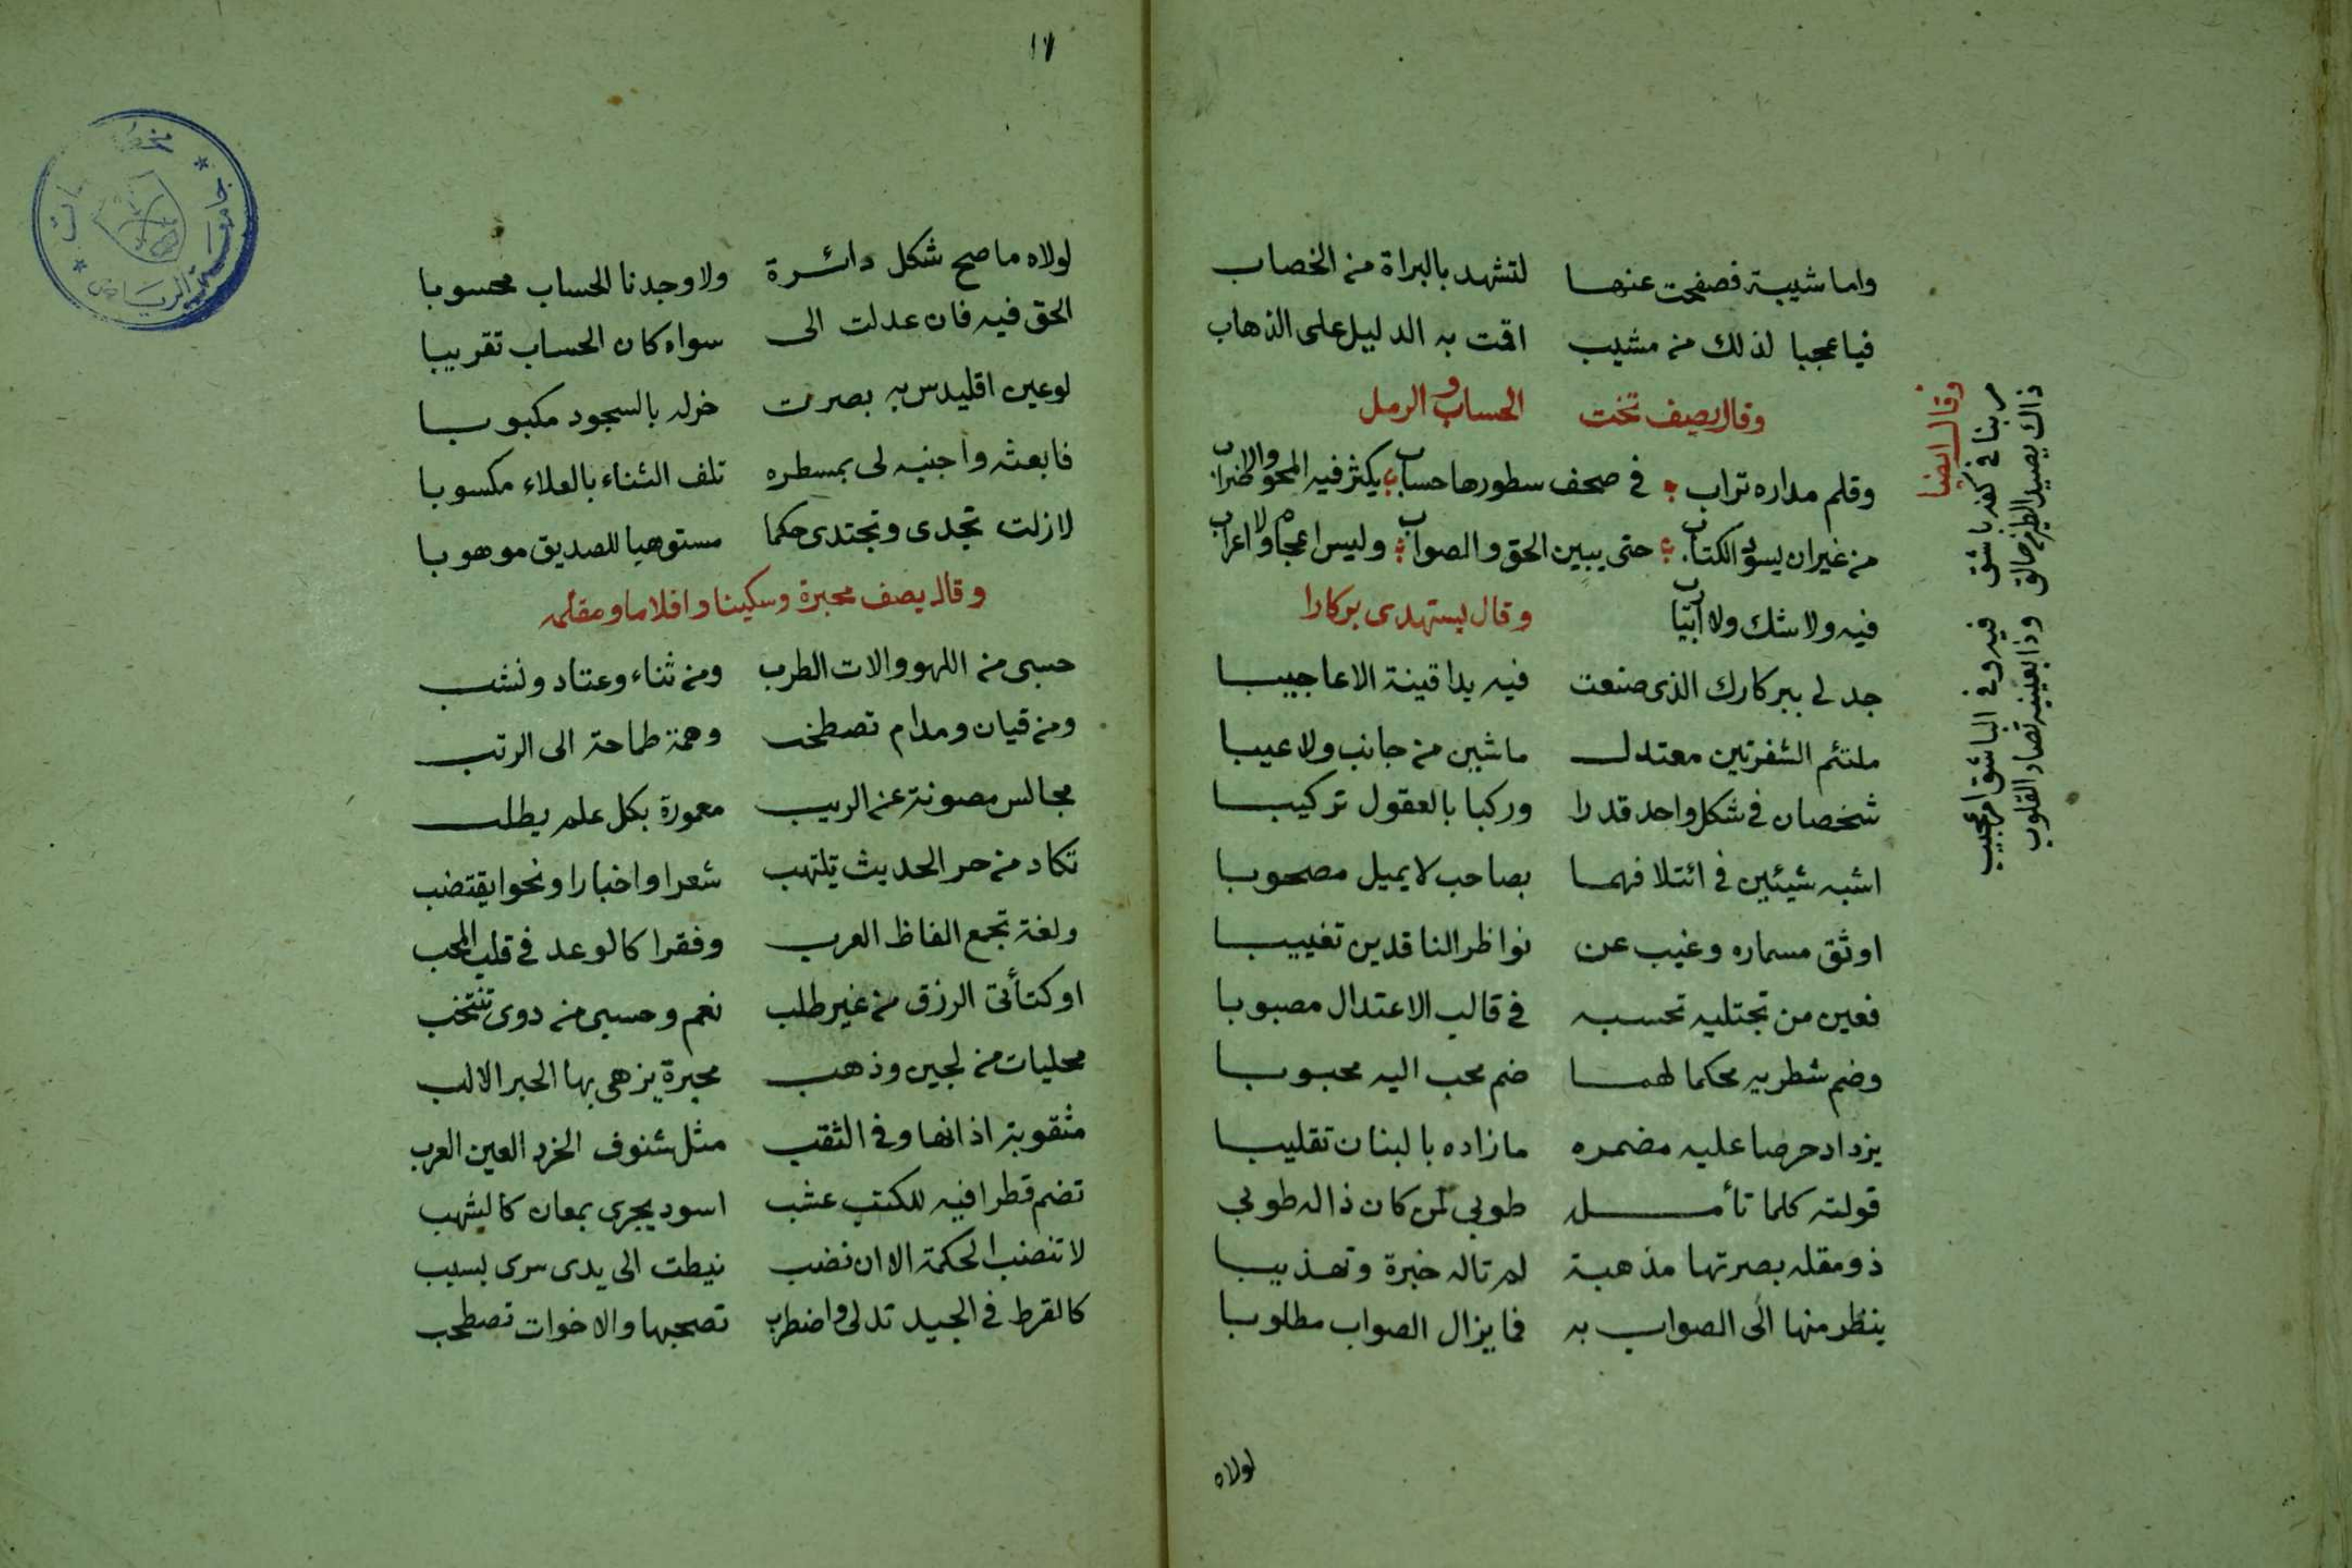 واما شيبة فصفحت عنها لتشهد بالبراة من الخضاب
فيا عجبا لذلك من مشيب اقمت به الدليل على الذهاب
وقال يصف تخت الحساب و الرمل
وقلم مداره تراب في صحف سطورها حساب يكثر فيه المحو والاضراب
من غير ان يسود الكتاب حتى يبين الحق والصواب وليس اعجام ولا اعراب
فيه ولا شك ولا وقال يستهدى بركارا
جد لي ببركارك الذى صنعت فيه يدا قينة الاعاجيبا
ملتئم الشفرتين معتدل ماشين من جانب ولا عيبا
شخصان في شكل واحد قدرا وركبا بالعقول تركيبا
اشبه شيئين في ائتلافهما بصاحب لا يميل مصحوبا
اوثق مسماره وغيب عن نواظر الناقدين تغييبا
فعين من تجتليه تحسبه في قالب الاعتدال مصبوبا
وضم شطريه محكما لهما ضم محب اليه محبوبا
يزداد حرصا عليه مضمره ما زاده بالبنان تقليبا
قولته كلما تأمله طوبي لمن كان ذا له طوبي
ذو مقله بصرتها مذهبة لم تاله خبرة وتهذيبا
ينظر منها الى الصواب به فما يزال الصواب مطلوبا
لولاه
وقال ايضا
مر بنا في كفه باشق فيه وفي الباشق امر عجيب
ذاك يصيد الطير من حالق وذا بعينيه تصاد القلوب
١٧
لولاه ما صح شكل دائرة ولا وجدنا الحساب محسوبا
الحق فيه فان عدلت الى سواه كان الحساب تقريبا
لو عين اقليدس به بصرت خر له بالسجود مكبوبا
فابعثه واجنبه لى بمسطره تلف الثناء بالعلاء مكسوبا
لازلت تجدى وتجتدى حكما مستوهبا للصديق موهوبا
وقال يصف محبرة وسكينا واقلاما ومقلمه
حسبى من اللهو والات الطرب ومن ثناء وعتاد ونشب
ومن قيان ومدام تصطخب وهمة طماحة الى الرتب
مجالس مصونة عن الريب معمورة بكل علم يطلب
تكاد من حر الحديث تلتهب شعرا واخبارا ونحوا يقتضب
ولغة تجمع الفاظ العرب وفقرا كالوعد في قلب المحب
او كتأتى الرزق من غير طلب نعم وحسبى من دوى تنتخب
محليات من لجين وذهب محبرة يزهى بها الحبر الالب
مثقوبة اذانها وفى الثقب مثل شنوف الخرد العين العرب
تضم قطرا فيه للكتب عشب اسود يجرى بمعان كالشهب
لا تنضب الحكمة الا ان نضب نيطت الى يدى سرى بسبب
كالقرط في الجيد تدلى واضطرب تصحبها والاخوات تصطحب
جامعة الرياض